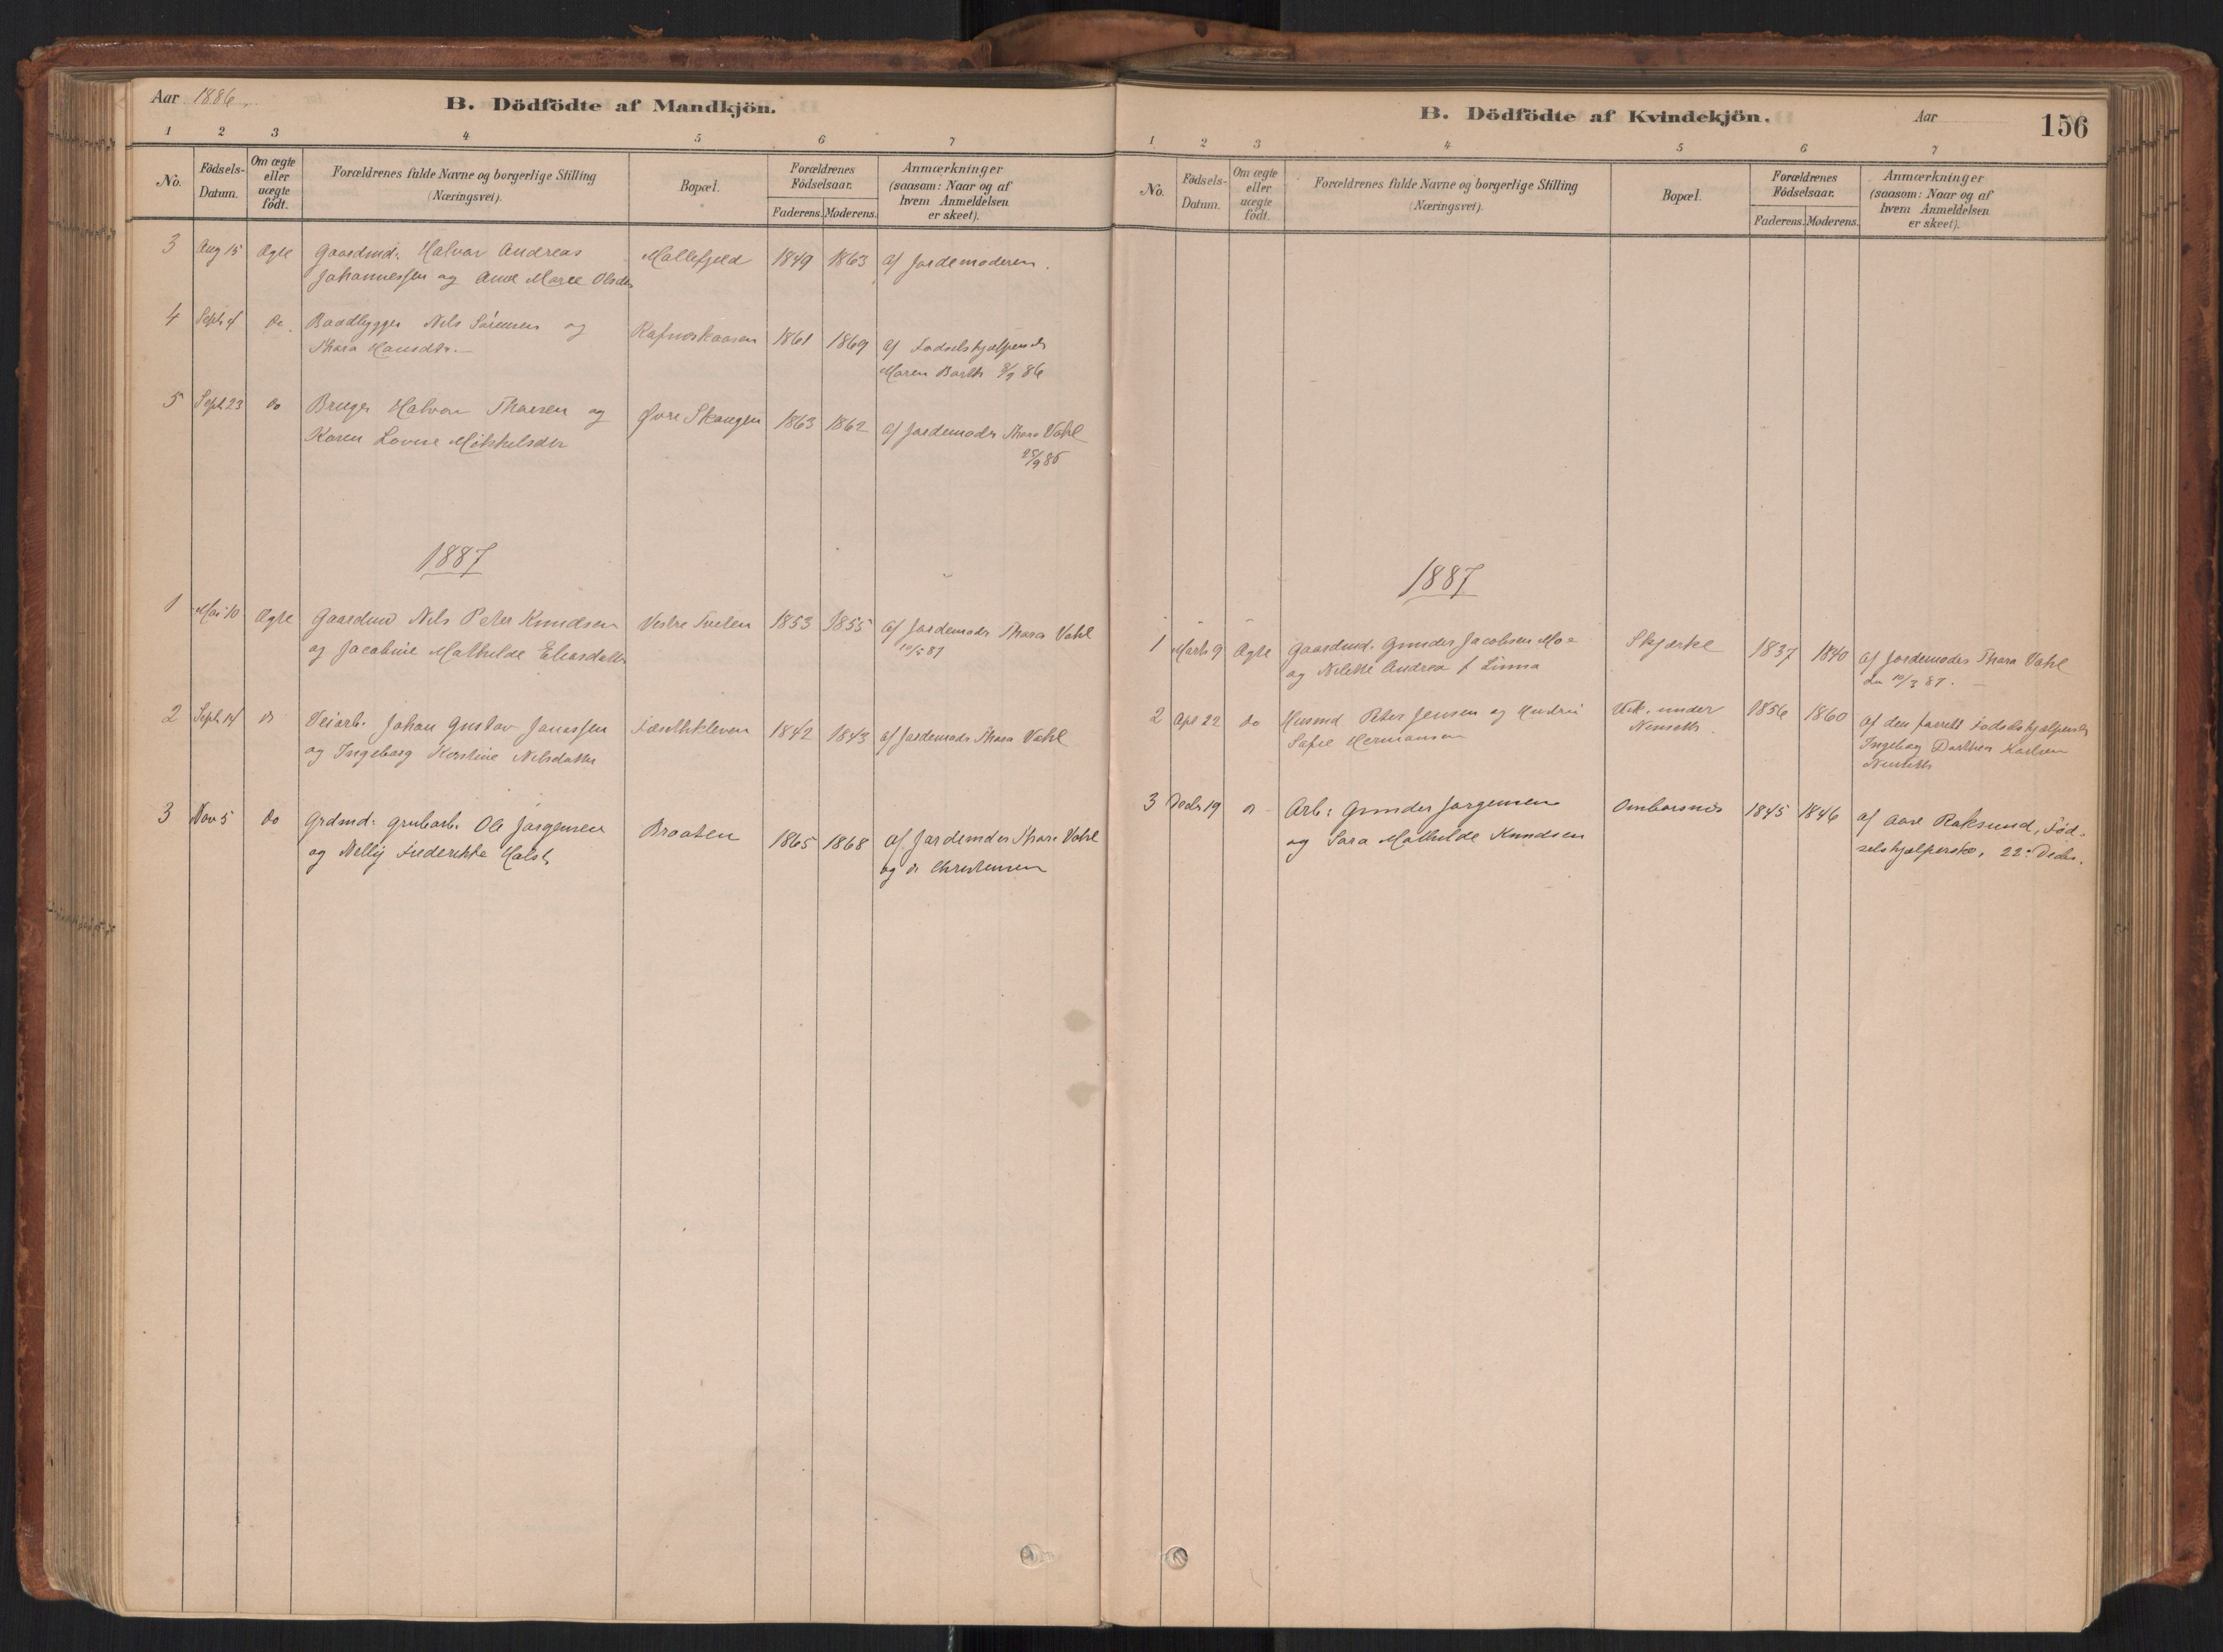 Aar 1886.
B. Dödfödte af Mandkjön.
1 2 3 4 5 6 7
No.
Födsels-Datum.
Om ægte eller uægte födt.
Forældrenes fulde Navne og borgerlige Stilling (Næringsvei).
Bopæl.
Forældrenes Födselsaar.
Faderens. Moderens.
Anmærkninger (saasom: Naar og af hvem Anmeldelsen er skeet).
3 Aug 15 Ægte Gaardmd. Halvor Andreas Mallefjeld 1849 1863 af Jordemoderen.
Johannessen og Anne Marie Olsdtr
4 Sept 4 do. Baadbygger Nils Sørensen og Rafnæskaasen 1861 1869 af Fødselshjælpersk
Thora Hansdtr.
Maren Barth 8/9 86
5 Sept 23 do Bruger Halvor Thorsen og Øvre Skaugen 1863 1862 af Jordemoder Thora Vahl
Karen Lovise Mikkelsdtr
25/9 86
1887
1 Mai 10 Ægte Gaardmd Nils Peter Knudsen Vestre Tveten 1853 1855 af Jordemodr Thora Vahl
og Jacobine Mathilde Eliasdatter
10/5 87
2 Sept 14 do Veiarb. Johan Gustav Janessen 1842 1843 af Jordemodr Thora Vahl
og Ingeborg Kirstine Nilsdatter
3 Nov 5 do Grdmd. Grubearb. Ole Jørgensen Braaten 1865 1868 af Jordemdr Thora Vahl
og Nelly Frederikke Holst
og dr Christensen
B. Dödfödte af Kvindekjön.
Aar
156
1 2 3 4 5 6 7
No.
Födsels-Datum.
Om ægte eller uægte födt.
Forældrenes fulde Navne og borgerlige Stilling (Næringsvei).
Bopæl.
Forældrenes Födselsaar.
Faderens. Moderens.
Anmærkninger (saasom: Naar og af hvem Anmeldelsen er skeet).
1887
1 Marts 9 Ægte Gaardmd. Gunder Jacobsen Moe Skjerke 1837 1840 af Jordemoder Thora Vahl
og Nilette Andrea f. Linna
d. 10/3 87.
2 Apl 22 do Husmd Peter Jensen og Vik. under 1856 1860 af den Fødselshjælpersk
Hermansen Nenseth.
Ingeborg Karlsen
Nenseth
3 Decbr 19 do Arb: Gunder Jørgensen Omborsnes 1845 1846 af Aase Raksund, Fød-
og Sara Mathilde Knudsen
selshjælperske, 22 Decbr.